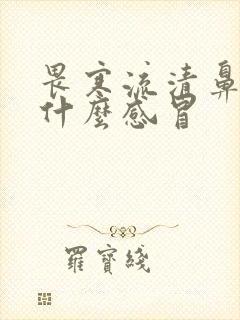 畏寒流清鼻
什麼感冒
羅寶綫